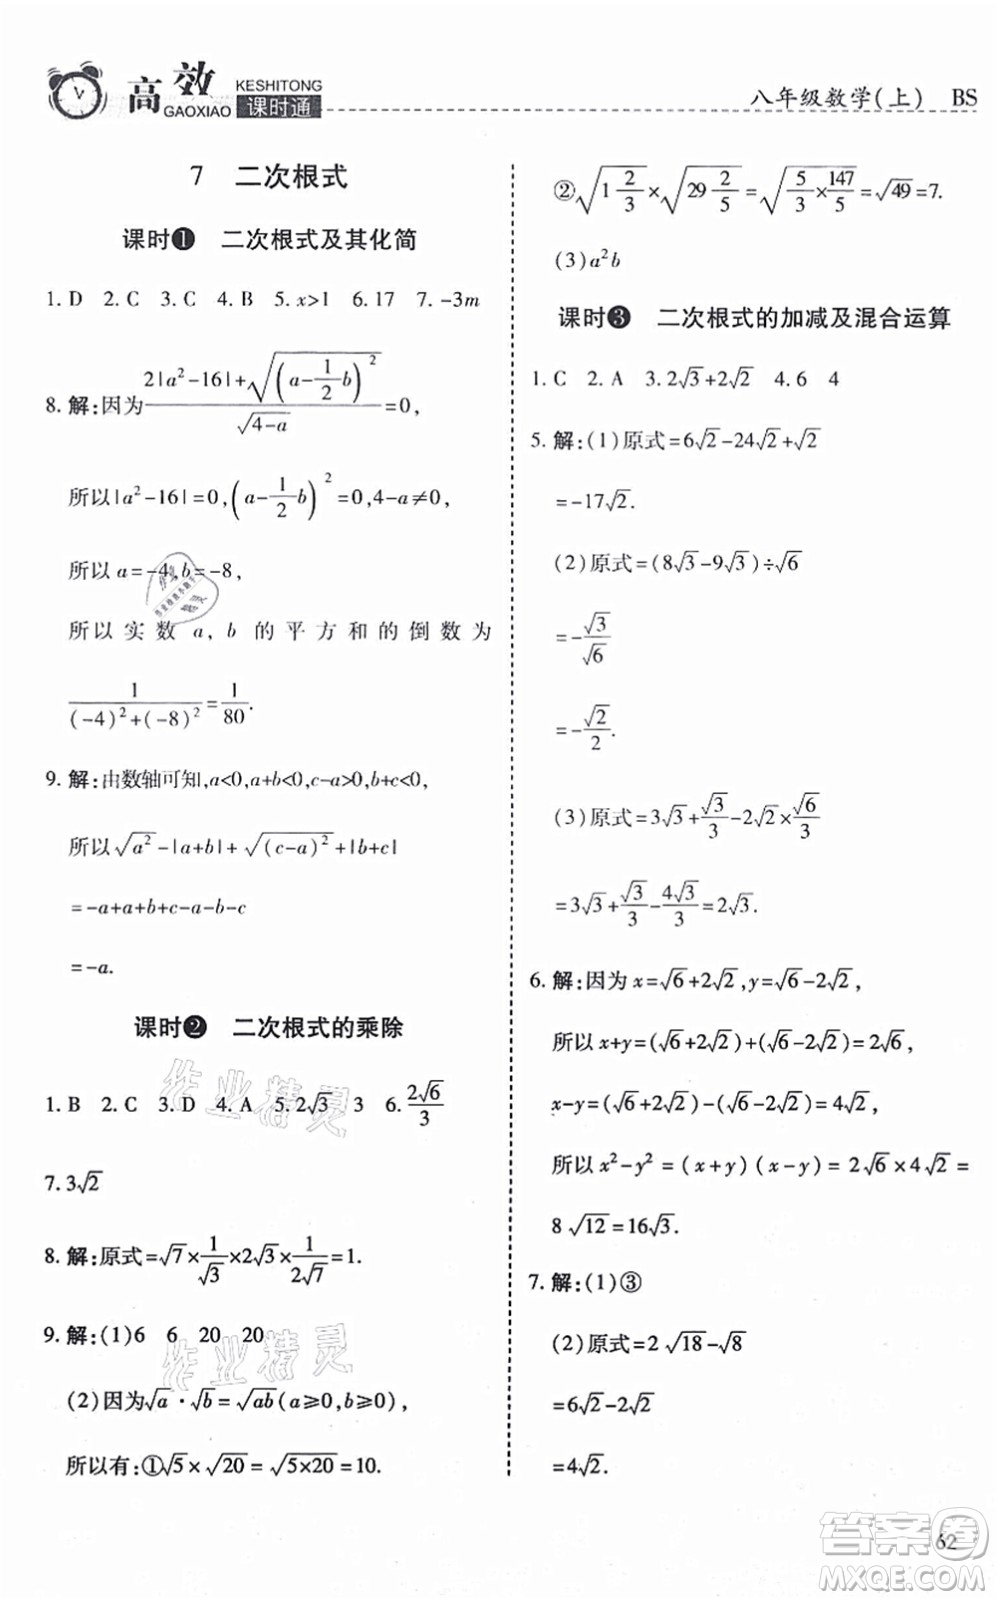 高效 KESHITONG
GAOXIAO 课时通
八年级数学(上) BS
7 二次根式
课时❶ 二次根式及其化简
1. D 2. C 3. C 4. B 5. x>1 6. 17 7. -3m
8. 解:因为(2|a²-16|+√((a-1/2b)²))/√(4-a)=0,
所以|a²-16|=0,(a-1/2b)²=0,4-a≠0,
所以a=-4,b=-8,
所以实数 a, b 的平方和的倒数为
1/((-4)²+(-8)²)=1/80.
9. 解:由数轴可知,a<0,a+b<0,c-a>0,b+c<0,
所以√(a²)-|a+b|+√((c-a)²)+|b+c|
=-a+a+b+c-a-b-c
=-a.
课时❷ 二次根式的乘除
1. B 2. C 3. D 4. A 5. 2√3 3 6. 2√6/3
7. 3√2
8. 解:原式=√7×1/√3×2√3×1/(2√7)=1.
9. 解:(1)6 6 20 20
(2)因为√a·√b=√(ab)(a≥0,b≥0),
所以有:①√5×√20=√(5×20)=10.
②√(1 2/3)×√(29 2/5)=√(5/3×147/5)=√49=7.
(3)a²b
课时❸ 二次根式的加减及混合运算
1. C 2. A 3. 2√3+2√2 4. 6 4
5. 解:(1)原式=6√2-24√2+√2
=-17√2.
(2)原式=(8√3-9√3)÷√6
=-√3/√6
=-√2/2.
(3)原式=3√3+√3/3-2√2×√6/3
=3√3+√3/3-4√3/3=2√3.
6. 解:因为x=√6+2√2,y=√6-2√2,
所以x+y=(√6+2√2)+(√6-2√2)=2√6,
x-y=(√6+2√2)-(√6-2√2)=4√2,
所以x²-y²=(x+y)(x-y)=2√6×4√2=
8√12=16√3.
7. 解:(1)③
(2)原式=2√18-√8
=6√2-2√2
=4√2.
62
作业精灵
作业精灵
答案卷
MXQE.COM